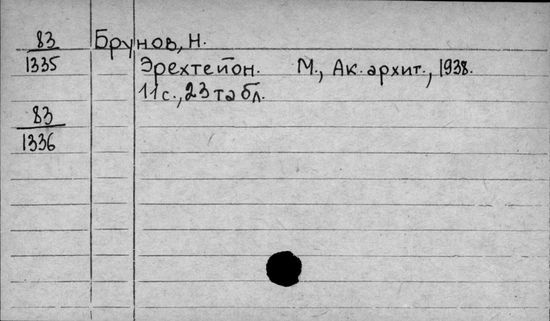 83 Брунов, Н.
1335 Эрехтейон. М., Ак. архит., 1938.
11 с., 23 табл.
83
1336